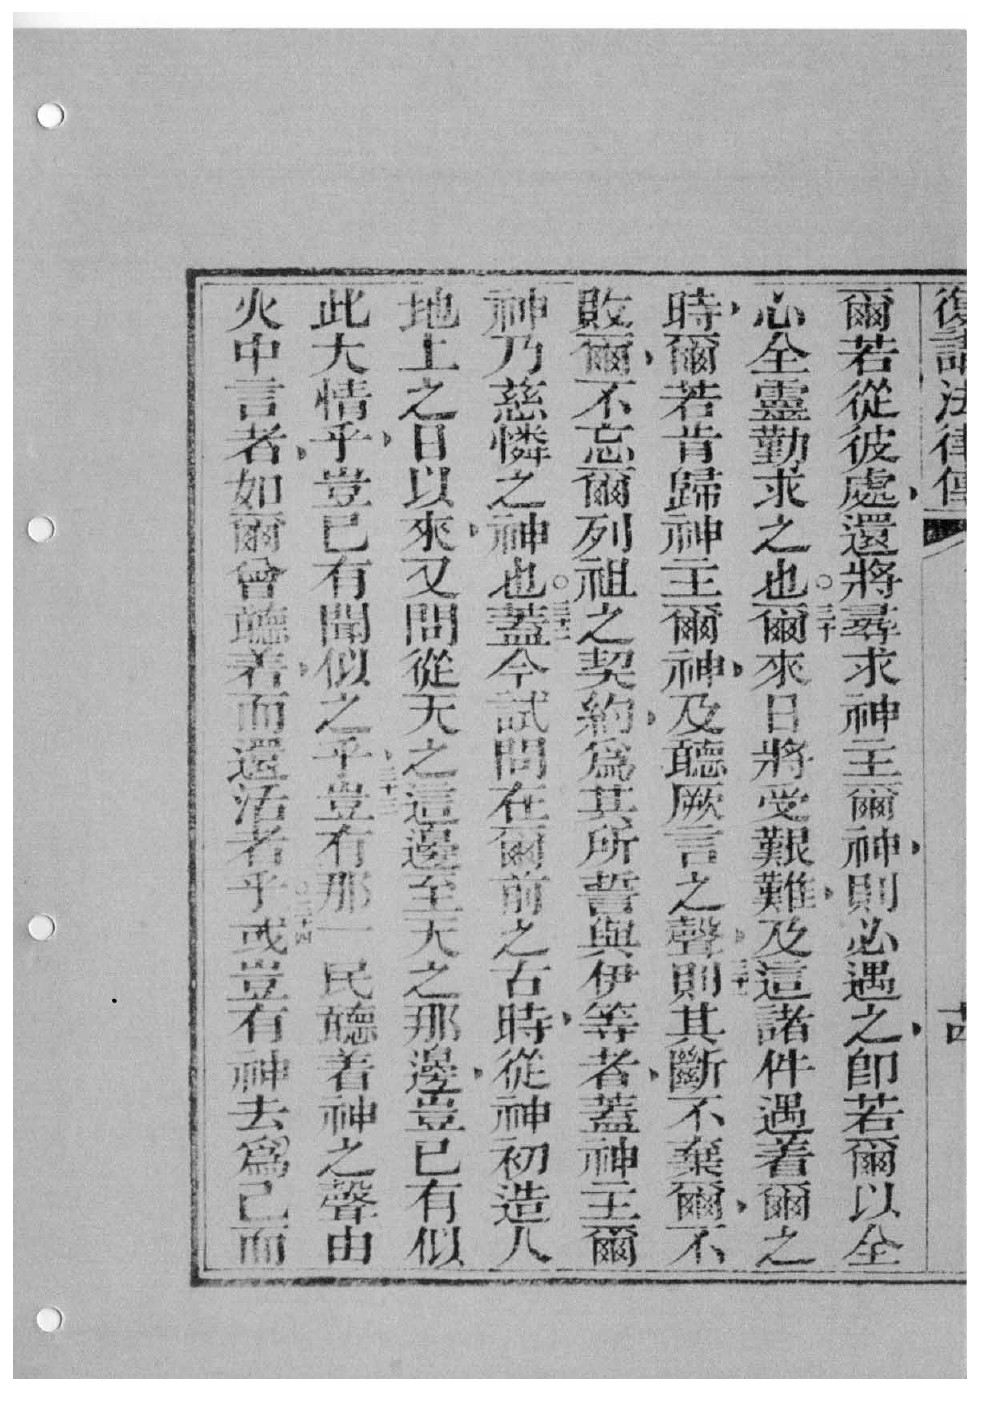 復講法律傳
爾若從彼處還將尋求神主爾神則必遇之卽若爾以全
心全靈勤求之也○三十爾來日將受艱難及這諸件遇着爾之
時爾若肯歸神主爾神及聽厥言之聲三十一則其斷不棄爾不
敗爾不忘爾列祖之契約爲其所誓與伊等者蓋神主爾
神乃慈憐之神也○三十二蓋今試問在爾前之古時從神初造人
地上之日以來又問從天之這邊至天之那邊豈已有似
此大情乎豈已有聞似之乎三十三豈有那一民聽着神之聲由
火中言者如爾曾聽着而還活者乎○三十四或豈有神去爲己而